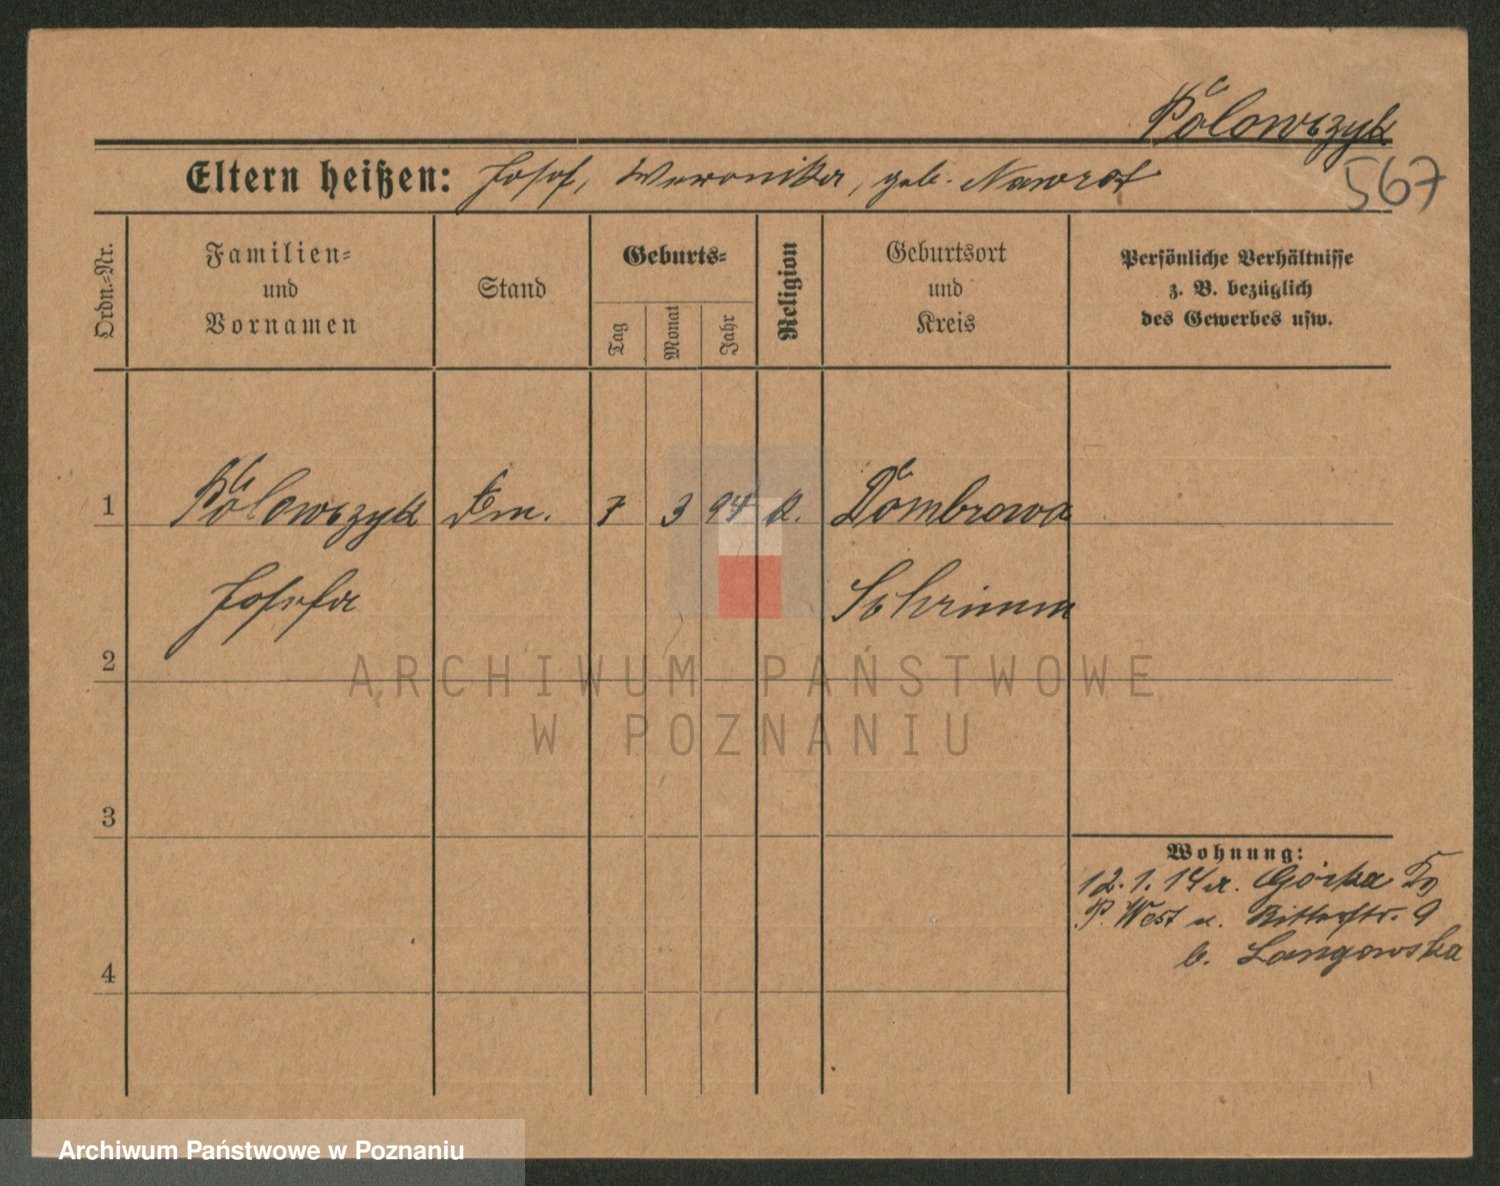 Polowczyk
Eltern heißen: Josef, Weronika, geb. Nawrot
567
Ordn.-Nr.
Familien-
und
Vornamen
Stand
Geburts-
Tag
Monat
Jahr
Religion
Geburtsort
und
Kreis
Persönliche Verhältnisse
z. B. bezüglich
des Gewerbes usw.
1 Polowczyk 7 3 94 K. Dombrowa
Josefa Schrimm
2
ARCHIWUM PAŃSTWOWE
W POZNANIU
3
Wohnung:
12. 1. 14 Górka
P. West n. Ritterstr. 9
b. Langowska
4
Archiwum Państwowe w Poznaniu